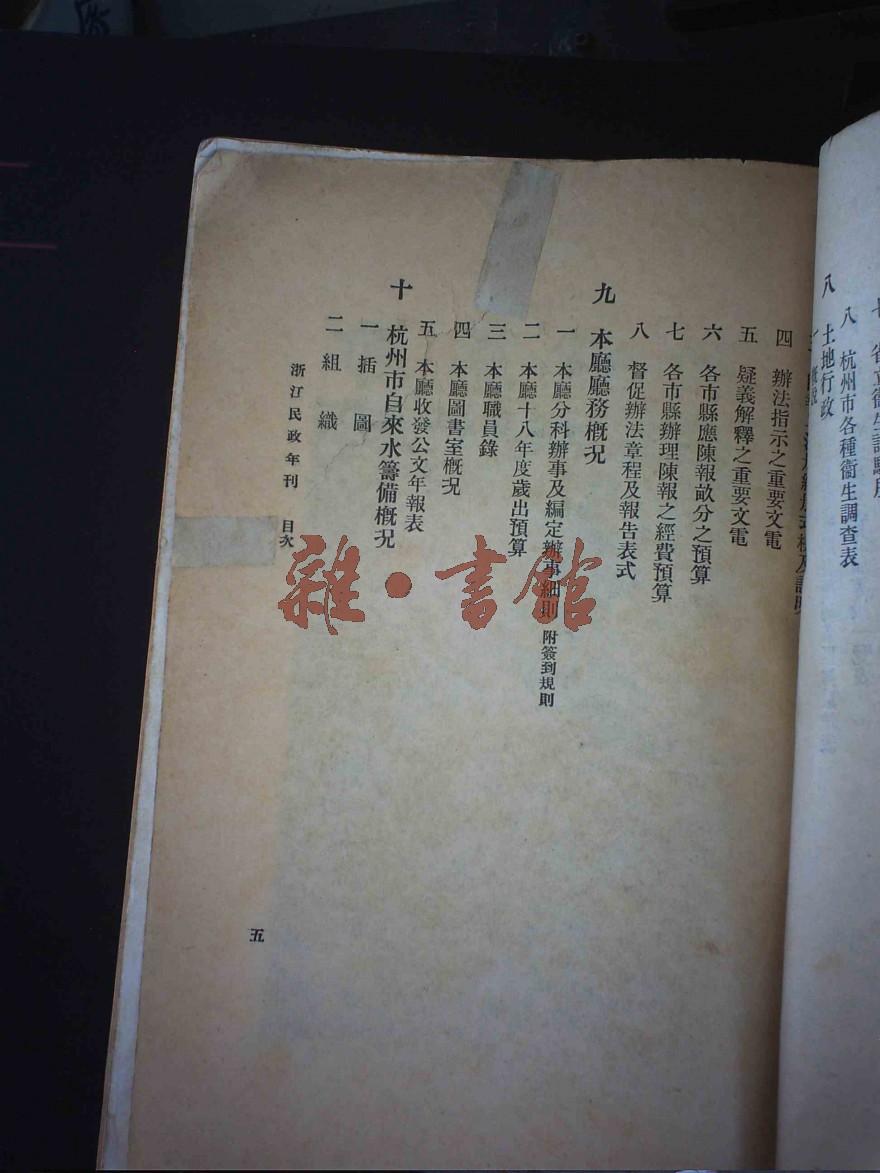 八 杭州市各種衞生調查表
八 土地行政
四 辦法指示之重要文電
五 疑義解釋之重要文電
六 各市縣應陳報畝分之預算
七 各市縣辦理陳報之經費預算
八 督促辦法章程及報告表式
九 本廳廳務概況
一 本廳分科辦事及編定辦事細則 附簽到規則
二 本廳十八年度歲出預算
三 本廳職員錄
四 本廳圖書室概況
五 本廳收發公文年報表
十 杭州市自來水籌備概況
一 插圖
二 組織
浙江民政年刊 目次
五
雜·書館